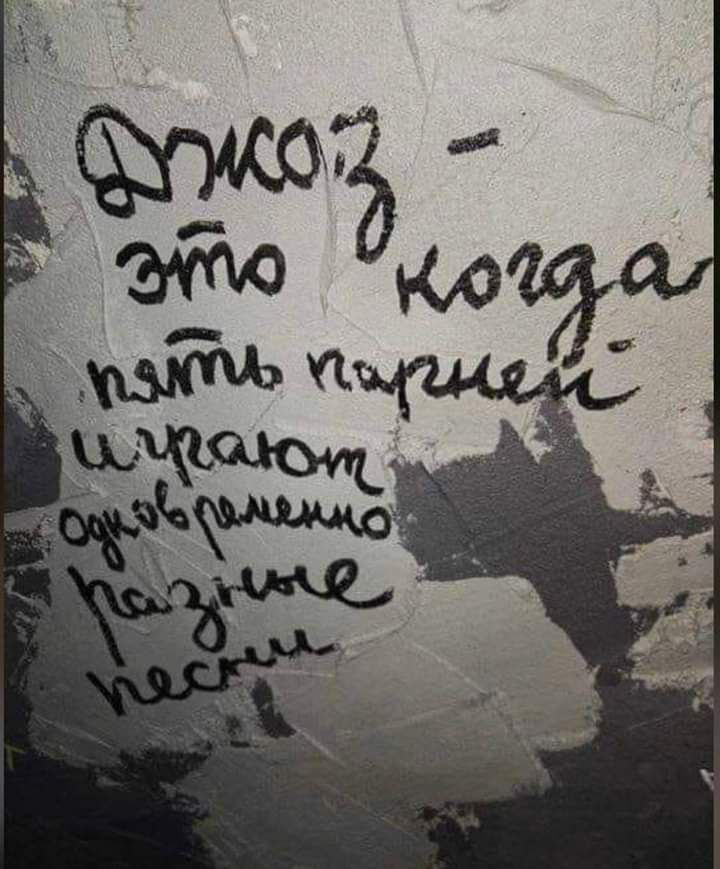 Джаз -
это когда
пять парней
играют
одновременно
разные
песни